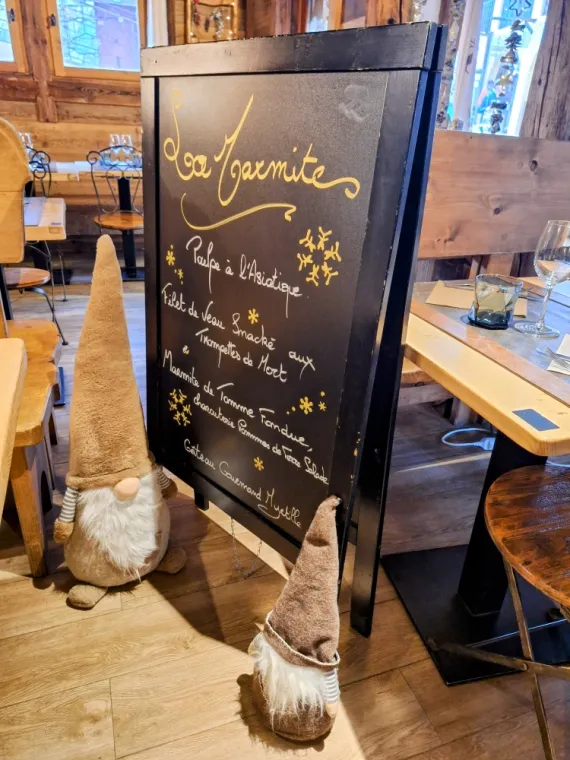 La Marmite
Poulpe à l'Asiatique
Filet de Veau Snacké aux
Trompettes de Mort
Marmite de Tomme Fondue,
charcuterie Pommes de Terre Salade
Gâteau Gourmand Myrtille